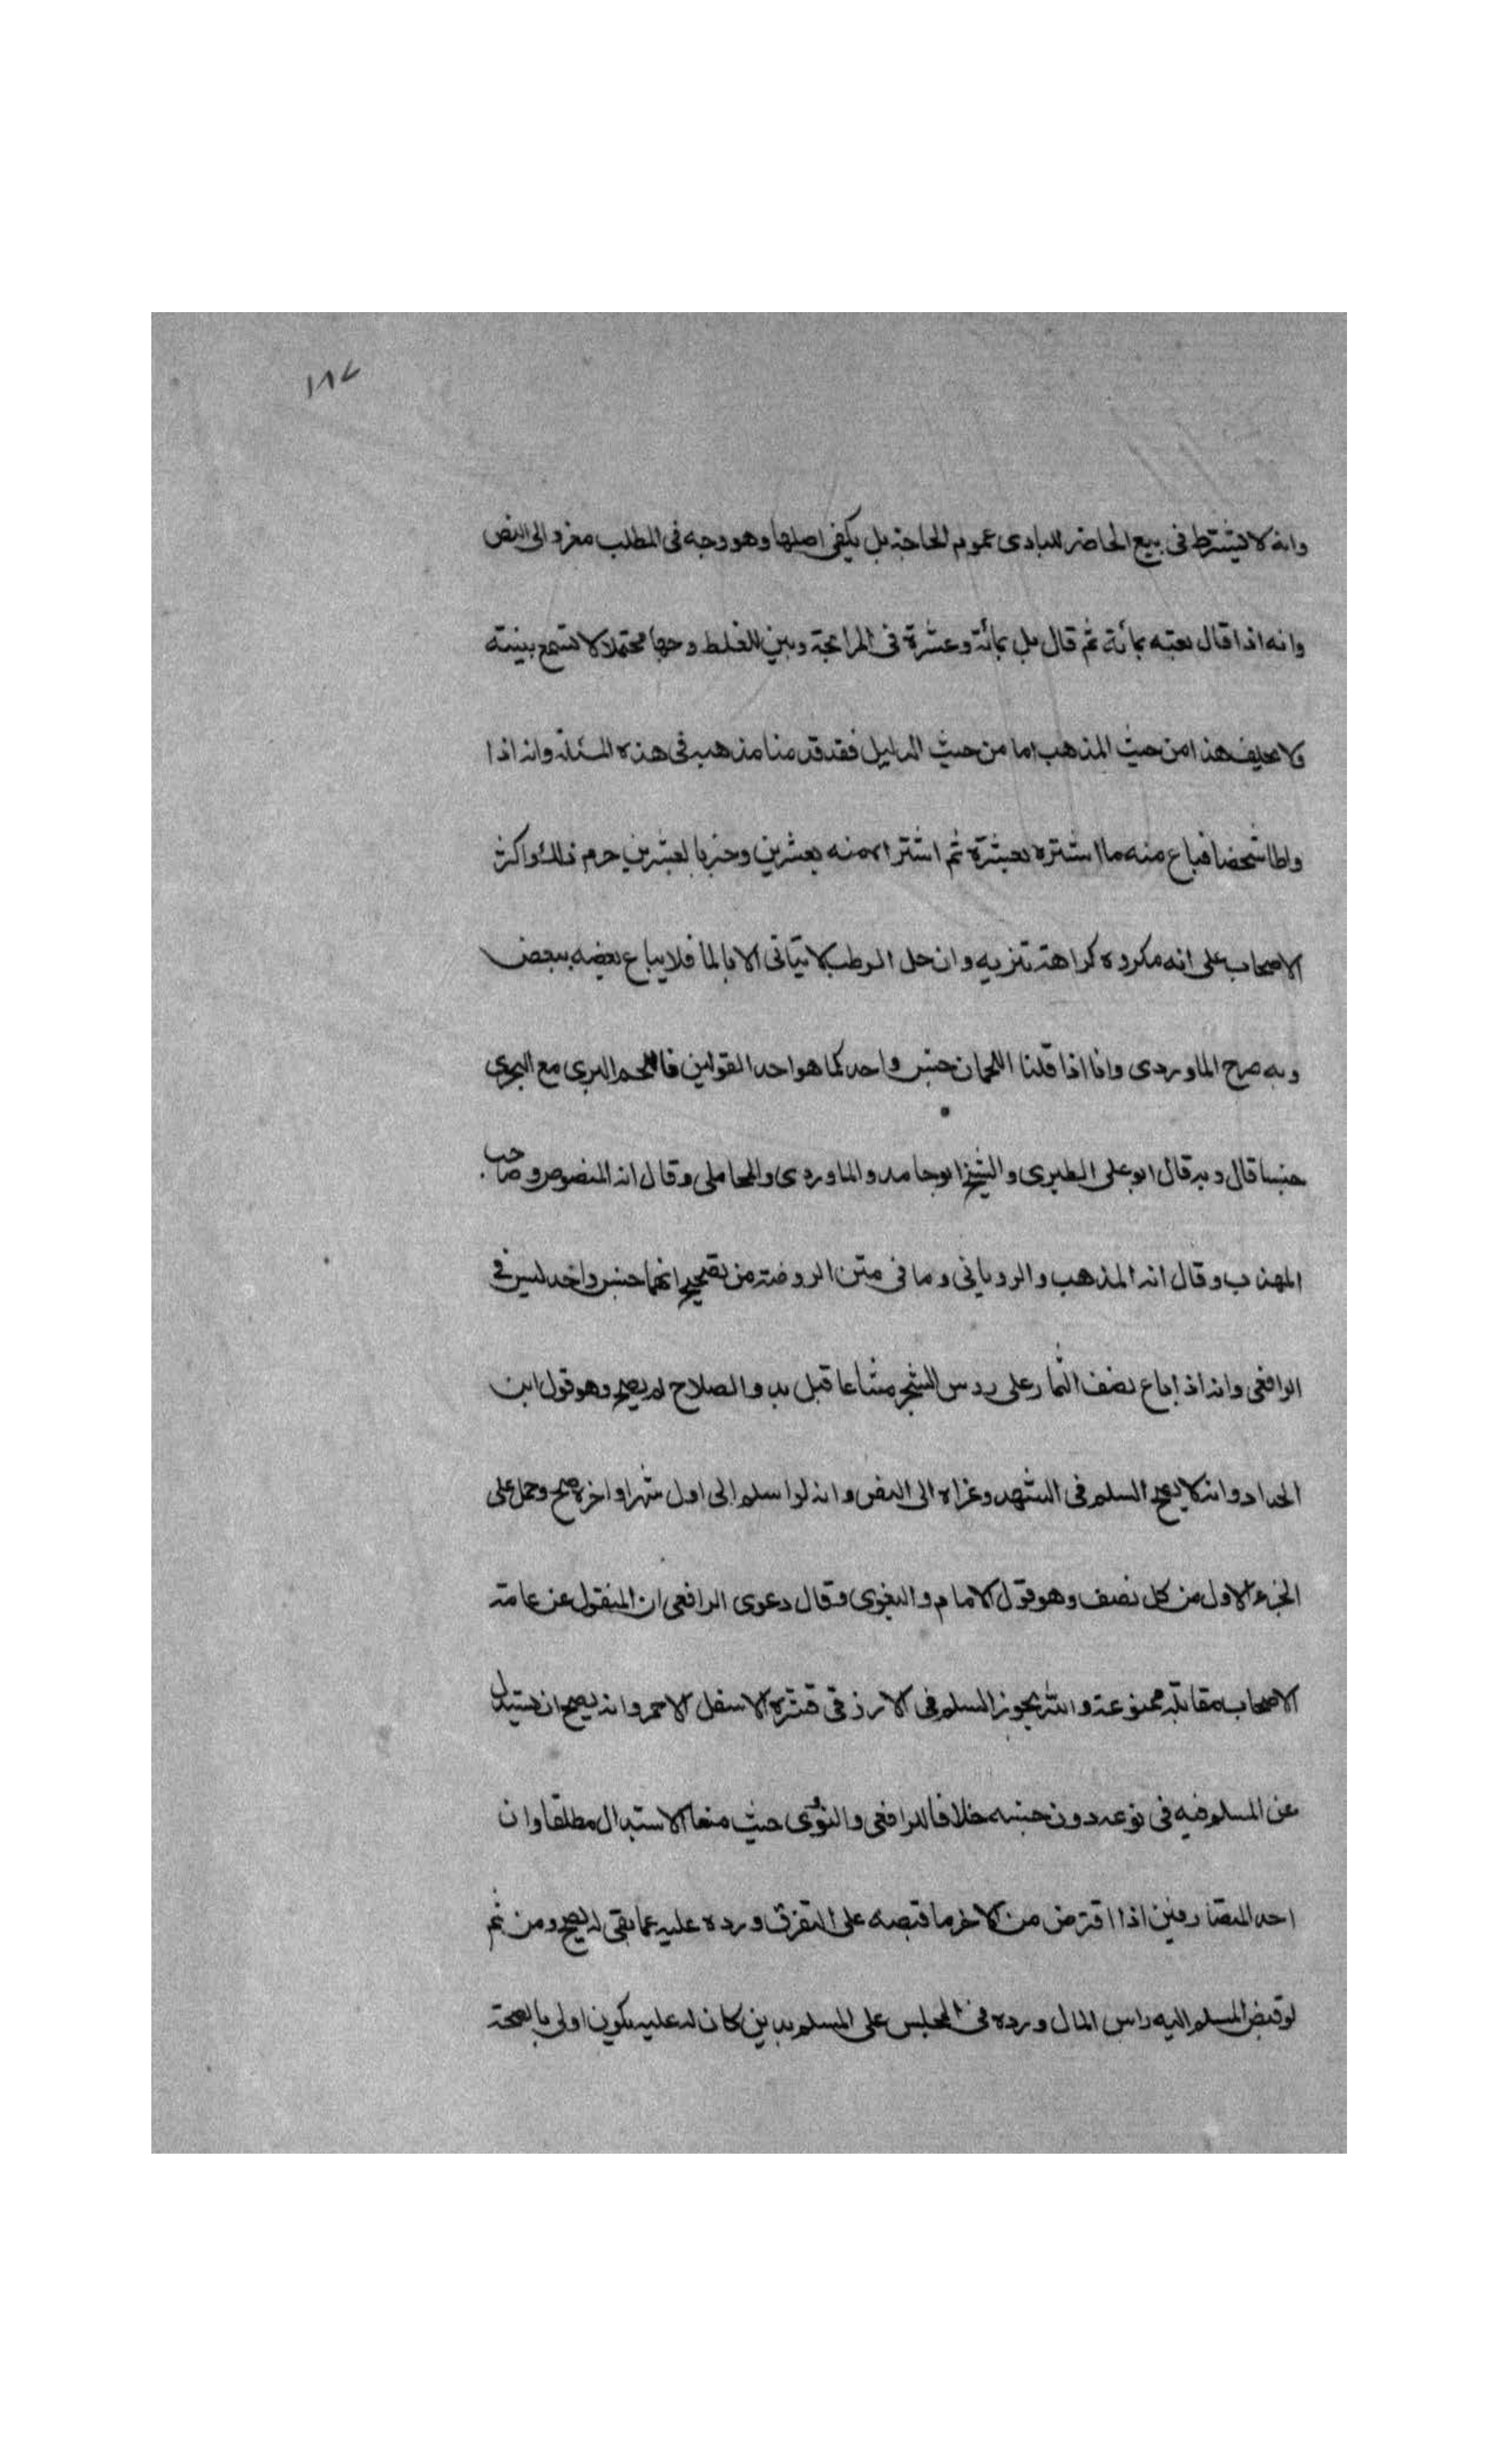 ١٨٧
وانه لا يشترط فى بيع الحاضر للبادى عموم الحاجة بل يكفى اصلها وهو وجه فى المطلب معزو الى النص
وانه اذا قال بعته بمائة ثم قال بل بمائة وعشرة فى المرابحة وبين للغلط وجها محتملا لا تسمع بينته
ولا يحلف هذا من حيث المذهب اما من حيث الدليل فقد قدمنا مذهبه فى هذه المسئلة وانه اذا
واطا شخصا فباع منه ما اشتره بعشرة ثم اشتراه منه بعشرين وخبر بالعشرين حرم ذلك واكثر
الاصحاب على انه مكروه كراهة تنزيه وان خل الرطب لا يتاتى الا بالما فلا يباع بعضه ببعض
وبه صرح الماوردى وانا اذا قلنا اللحمان جنس واحد كما هو احد القولين فاللحم البرى مع البحرى
جنسا قال وبه قال ابو على الطبرى والشيخ ابو حامد والماوردى والمحاملى وقال انه المنصوص وصاحب
المهذب وقال انه المذهب والرويانى وما فى متن الروضة من تصحيح انهما جنس واحد ليس فى
الرافعى وانه اذا باع نصف الثمار على روس الشجر مشاعا قبل بدو الصلاح لم يصح وهو قول ابن
الحداد وانه لا يصح السلم فى الشهد وعزاه الى النص وانه لو اسلم الى اول شهر او اخره صح وحمل على
الجزء الاول من كل نصف وهو قول الامام والبغوى وقال دعوى الرافعى ان المنقول عن عامة
الاصحاب مقابله ممنوعة وانه يجوز السلم فى الارز فى قشره الاسفل الاحمر وانه يصح ان يستبدل
عن المسلم فيه فى نوعه دون جنسه خلافا للرافعى والنووى حيث منعا الاستبدال مطلقا وان
احد المتصارفين اذا اقترض من الاخر ما قبضه على التفرق ورده عليه عما بقى له يصح ومن ثم
لو قبض المسلم اليه راس المال ورده فى المجلس على المسلم بدين كان له عليه يكون اولى بالصحة